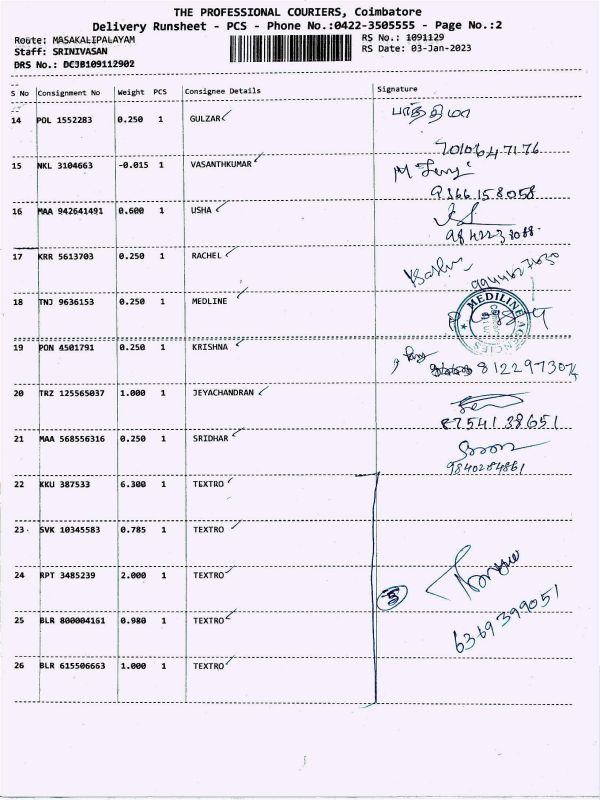 THE PROFESSIONAL COURIERS, Coimbatore
Delivery Runsheet - PCS - Phone No.:0422-3505555 - Page No.:2
Route: MASAKALIPALAYAM RS No.: 1091129
Staff: SRINIVASAN RS Date: 03-Jan-2023
DRS No.: DCJB109112902
S No Consignment No Weight PCS Consignee Details Signature
14 POL 1552283 0.250 1 GULZAR பாத்திமா
7010647176
15 NKL 3104663 -0.015 1 VASANTHKUMAR
9366158058
16 MAA 942641491 0.600 1 USHA
9842238088
17 KRR 5613703 0.250 1 RACHEL
9944627030
18 TNJ 9636153 0.250 1 MEDLINE
MEDILINE AGENCIES
19 PON 4501791 0.250 1 KRISHNA
8122973074
20 TRZ 125565037 1.000 1 JEYACHANDRAN
8754138651
21 MAA 568556316 0.250 1 SRIDHAR
9840284861
22 KKU 387533 6.300 1 TEXTRO
23 SVK 10345583 0.785 1 TEXTRO
24 RPT 3485239 2.000 1 TEXTRO
5
25 BLR 800004161 0.980 1 TEXTRO
6369399051
26 BLR 615506663 1.000 1 TEXTRO